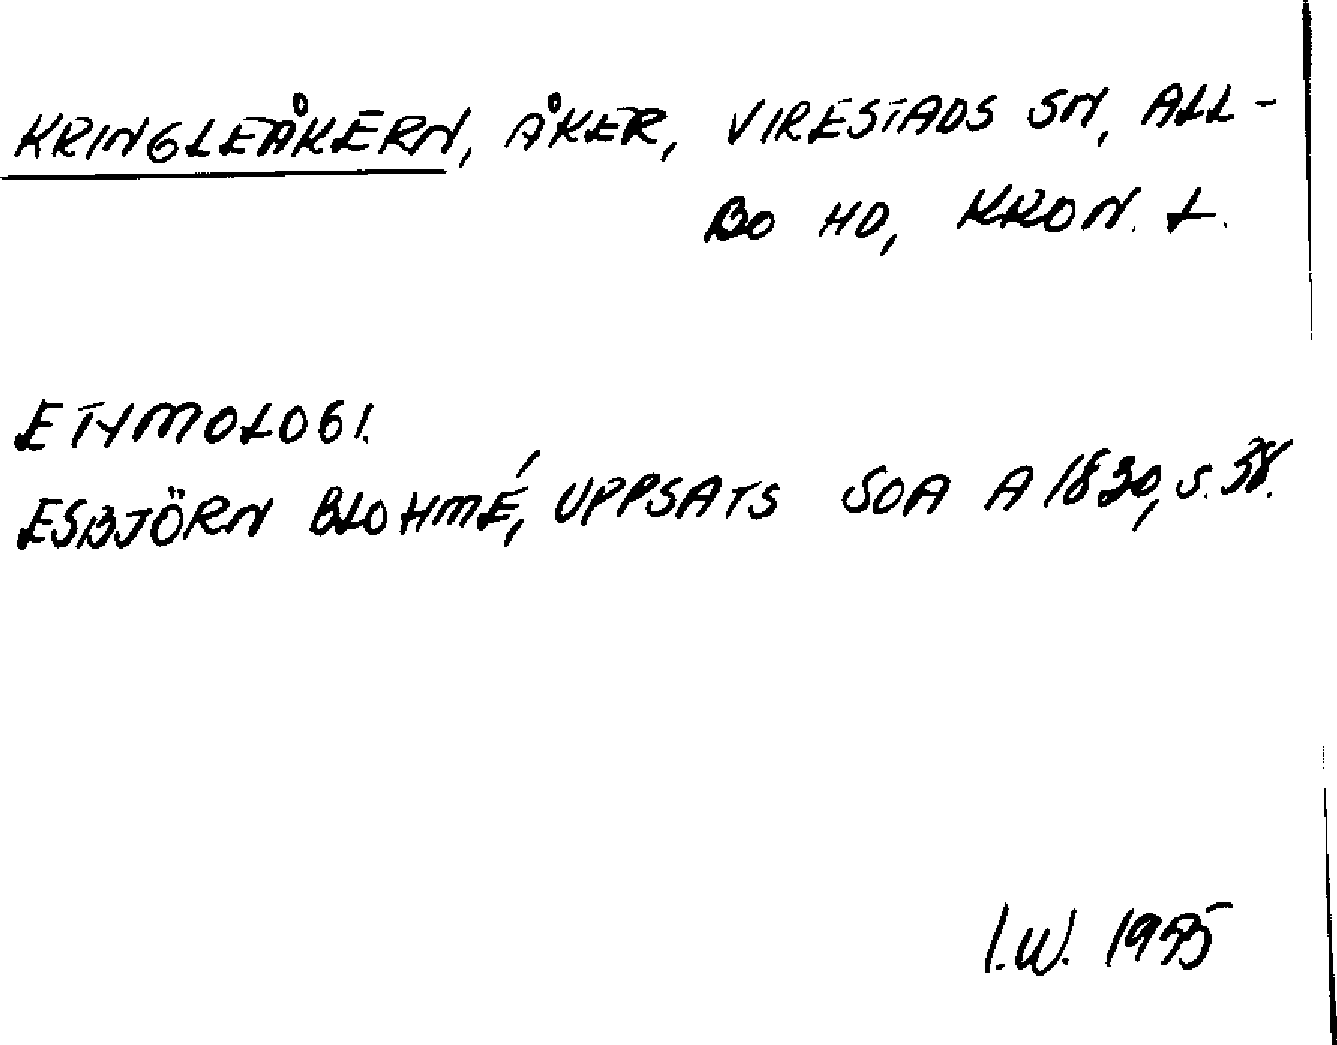 KRINGLEÅKERN, ÅKER, VIRESTADS SN, ALL-
BO HD, KRON. L.
ETYMOLOGI.
ESBJÖRN BLOHMÉ, UPPSATS SOA A 1830, S. 38.
I.W. 1975